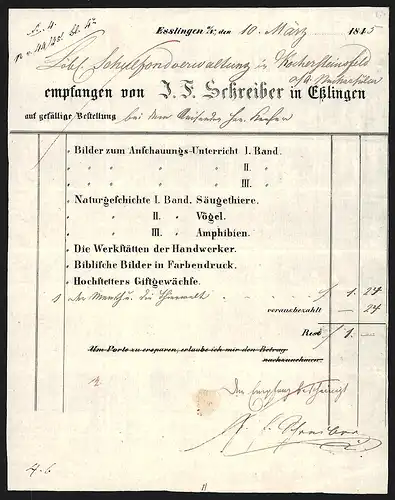 Esslingen a/N, den 10. März 1845
Löbl. Schulfondverwaltung in Kochersteinsfeld
empfangen von J. F. Schreiber in Eßlingen
auf gefällige Bestellung bei dem Reisenden Hrn.
„ Bilder zum Anschauungs-Unterricht I. Band.
„ „ „ „ II. „
„ „ „ „ III. „
„ Naturgeschichte I. Band. Säugethiere.
„ „ II. „ Vögel.
„ „ III. „ Amphibien.
„ Die Werkstätten der Handwerker.
„ Biblische Bilder in Farbendruck.
„ Hochstetters Giftgewächse.
1 der Mensch u. die Thierwelt f 1. 24
vorausbezahlt — 24
Rest f 1. —
Um Porto zu ersparen, erlaube ich mir den Betrag
nachzunehmen.
Den Empfang bescheinigt
J. F. Schreiber